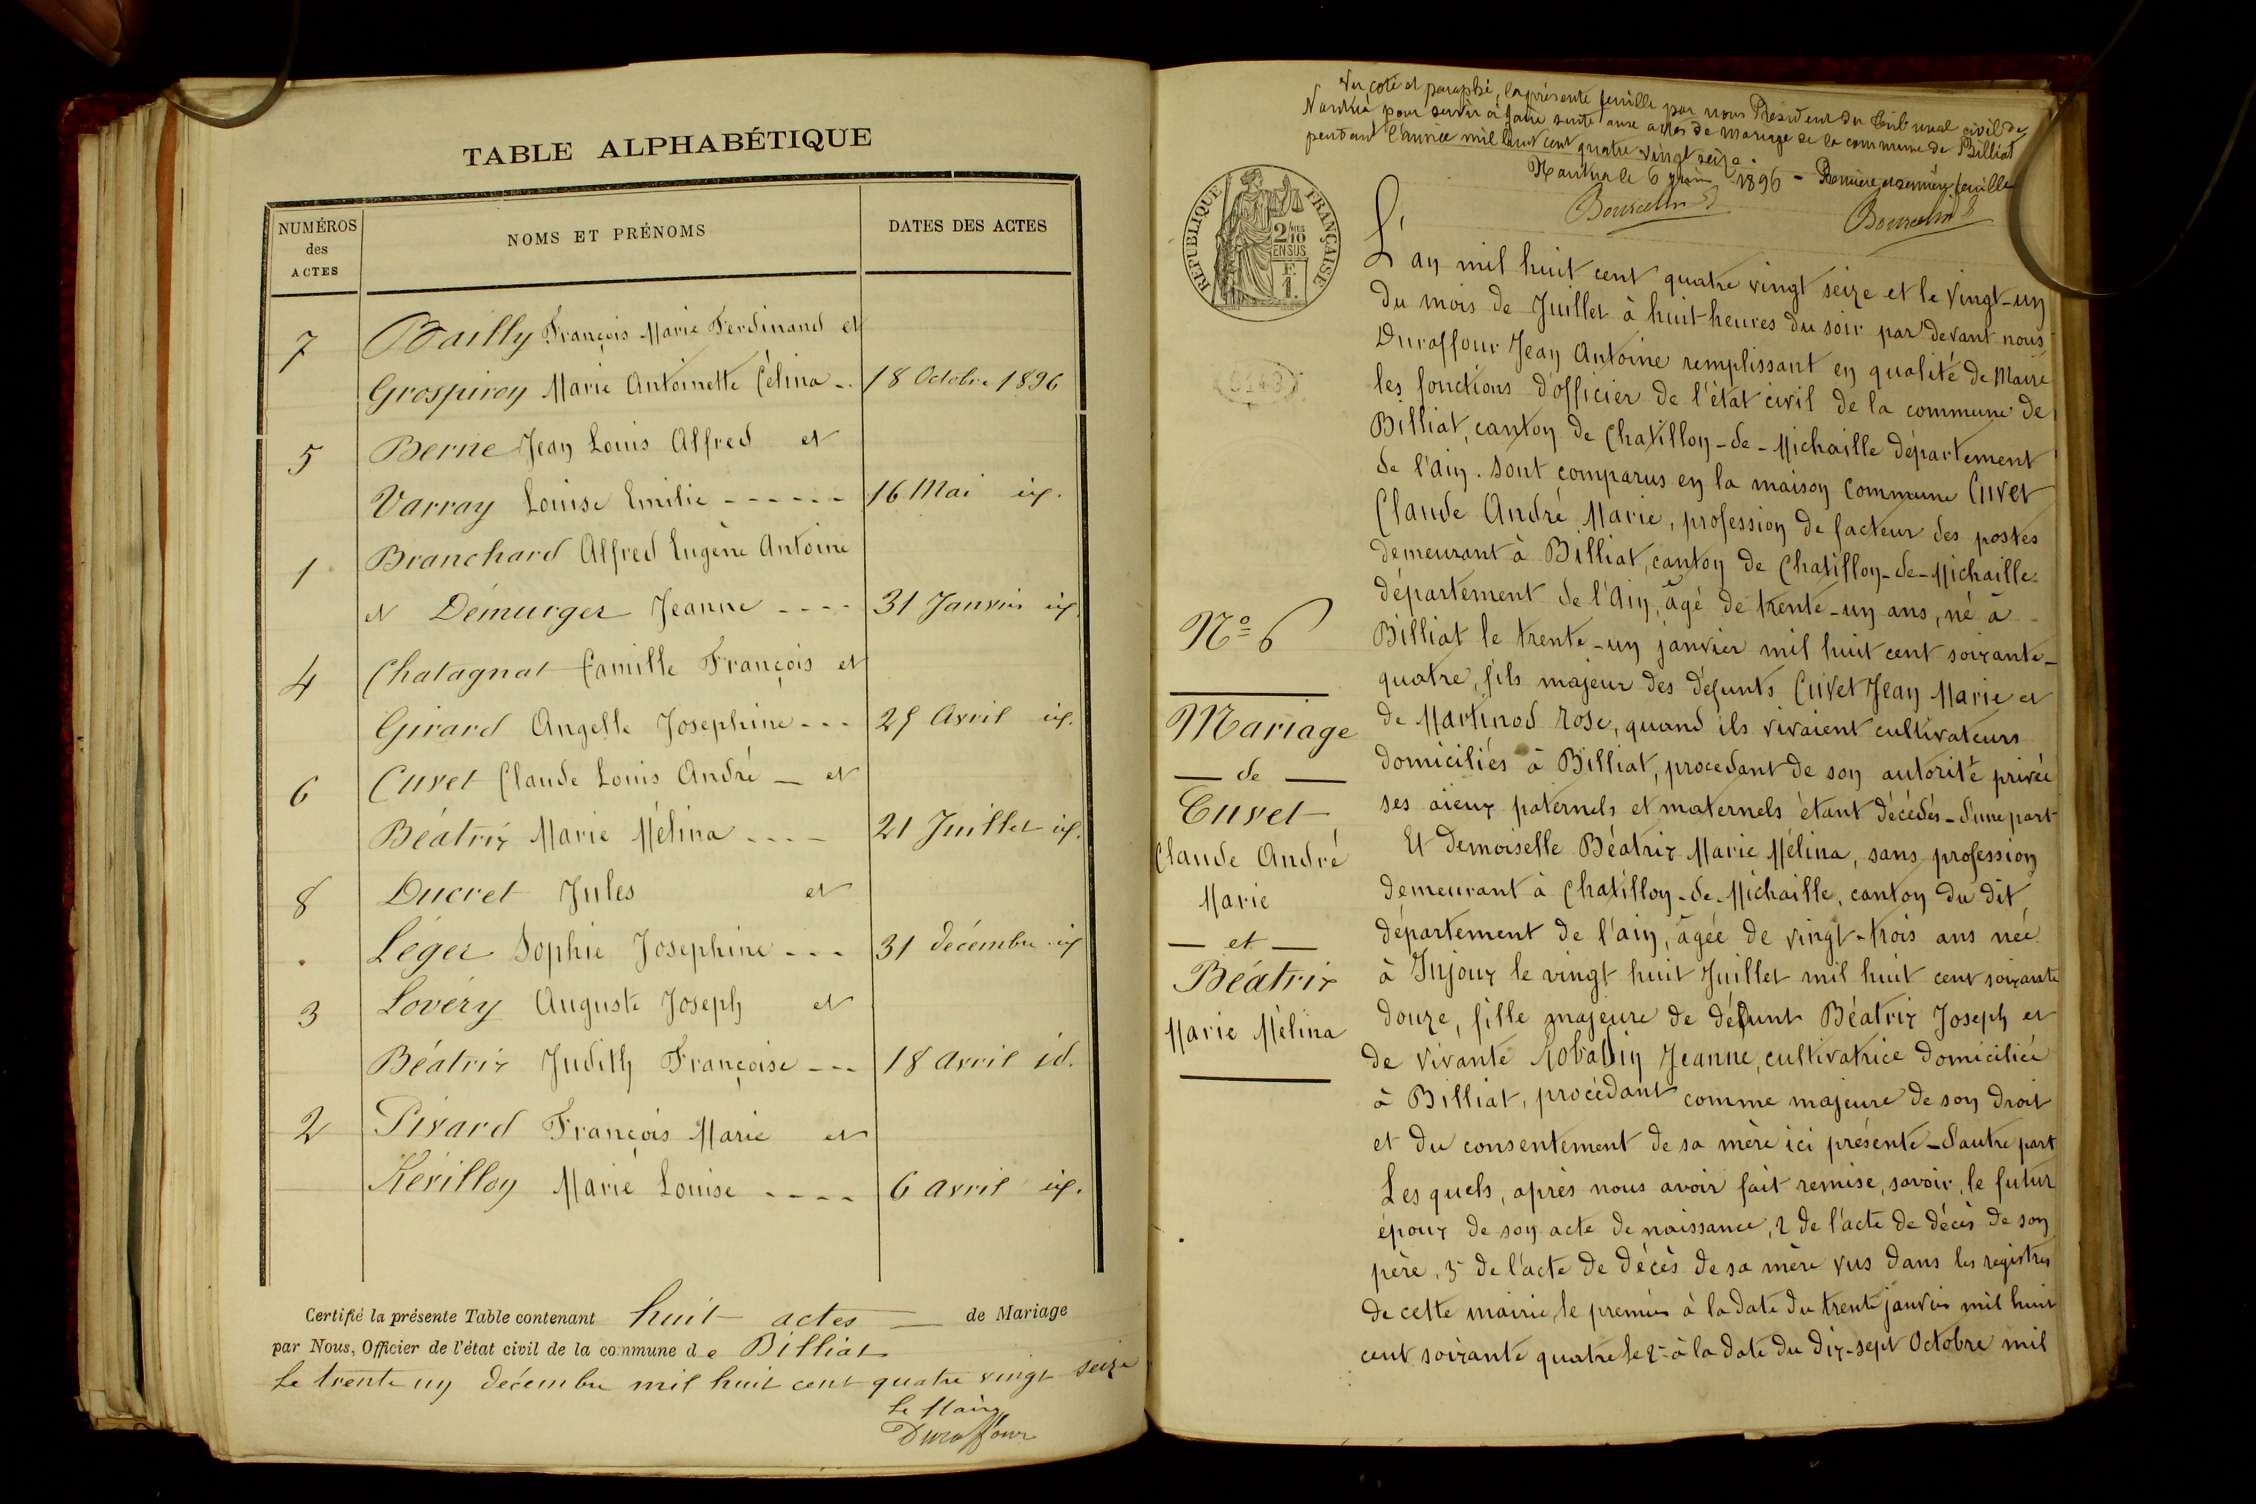 TABLE ALPHABÉTIQUE
NUMÉROS des ACTES
NOMS ET PRÉNOMS
DATES DES ACTES
7 Bailly François Marie Ferdinand et
Grospiron Marie Antoinette Célina - . 18 Octobre 1896
5 Berne Jean Louis Alfred et
Varray Louise Emilie - - - - - - 16 Mai id.
1 Branchard Alfred Eugène Antoine
et Démurger Jeanne - - - - 31 Janvier id.
4 Chatagnat Camille François et
Girard Angelle Josephine - - - Avril id.
6 Cuvet Claude Louis André — et
Béatrix Marie Mélina - - - - 21 Juillet id.
8 Ducret Jules et
Léger Sophie Josephine - - - 31 décembre id
3 Lovéry Auguste Joseph et
Béatrix Judith Françoise - - - 18 avril id.
2 Pivard François Marie et
Marie Louise - - - - 6 avril id.
Certifié la présente Table contenant huit actes — de Mariage
par Nous, Officier de l'état civil de la commune de Billiat
le trente un décembre mil huit cent quatre vingt seize
le Maire
Duraffour
Vu, coté et paraphé, la présente feuille par nous Président du Tribunal civil de
Nantua pour servir à faire suite aux actes de mariage de la commune de Billiat
pendant l'année mil huit cent quatre vingt seize.
Nantua le 6 juin 1896 - Première et dernière feuille
RÉPUBLIQUE FRANÇAISE
2/10 EN SUS
L'an mil huit cent quatre vingt seize et le vingt-un
du mois de Juillet à huit heures du soir par devant nous
Duraffour Jean Antoine remplissant en qualité de Maire
les fonctions d'officier de l'état civil de la commune de
Billiat, canton de Chatillon-de-Michaille département
de l'ain. sont comparus en la maison commune Cuvet
Claude André Marie, profession de facteur des postes
demeurant à Billiat, canton de Chatillon-de-Michaille
département de l'Ain, âgé de trente-un ans, né à
Billiat le trente-un janvier mil huit cent soixante-
quatre, fils majeur des défunts Cuvet Jean Marie et
de Martinod rose, quand ils vivaient cultivateurs
domiciliés à Billiat, procedant de son autorité privée
ses aieux paternels et maternels étant décédés - d'une part
Et demoiselle Béatrix Marie Mélina, sans profession
demeurant à Chatillon-de-Michaille, canton du dit,
département de l'ain, âgée de vingt-trois ans née
à Injoux le vingt huit Juillet mil huit cent soixante
douze, fille majeure de défunt Béatrix Joseph et
de vivante Robadin Jeanne, cultivatrice domiciliée
à Billiat, procédant comme majeure de son droit
et du consentement de sa mère ici présente - d'autre part
Les quels, après nous avoir fait remise, savoir, le futur
époux de son acte de naissance, 2 de l'acte de décès de son
père, 3 de l'acte de décès de sa mère vus dans les registres
de cette mairie, le premier à la date du trente janvier mil huit
cent soixante quatre le 2e à la date du dix-sept Octobre mil
No 6
Mariage
— de —
Cuvet
Claude André
Marie
— et —
Béatrix
Marie Mélina